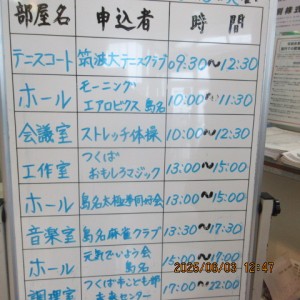 部屋名 申込者 時間
テニスコート 筑波大テニスクラブ 9:30〜12:30
ホール モーニング エアロビクス 島名 10:00〜11:30
会議室 ストレッチ体操 10:00〜12:30
工作室 つくば おもしろマジック 13:00〜15:00
ホール 島名太極拳同好会 13:00〜15:00
音楽室 島名麻雀クラブ 13:30〜17:30
ホール 元気でいよう会 島名 15:00〜17:00
調理室 つくば市こども部 未来センター 17:00〜22:00
2025/08/03 12:47